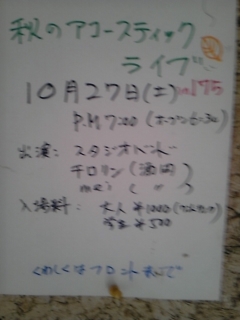 秋のアコースティック
ライブ
10月27日(土)
P.M 7:00 (オープン6:30)
出演: スタジオバンド
チロリン(酒田)
mei ( 〃 )
入場料: 大人 ¥1000(1ドリンク)
学生 ¥500
くわしくは フロント まで